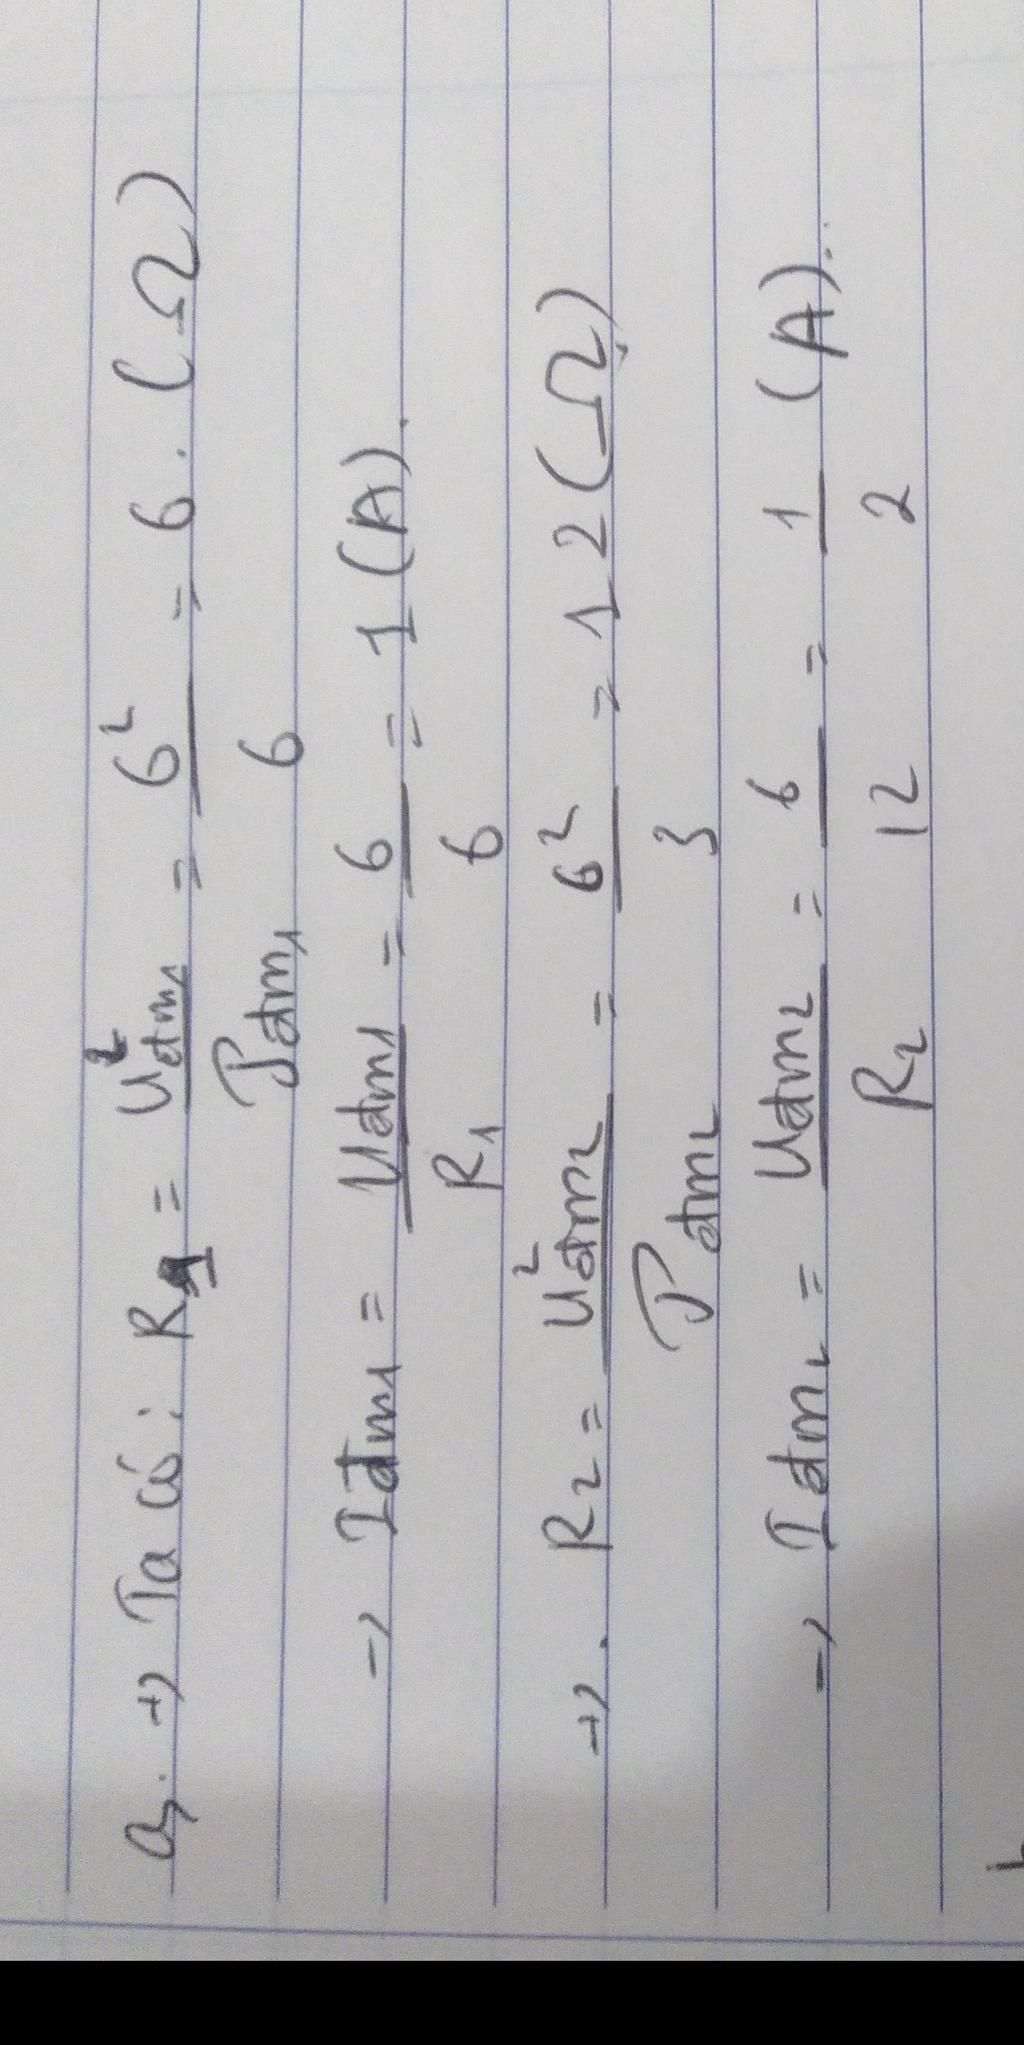 a, +) Ta có: R₁ = U²đm₁ / Pđm₁ = 6² / 6 = 6. (Ω)
→ Iđm₁ = Uđm₁ / R₁ = 6 / 6 = 1 (A).
+). R₂ = U²đm₂ / Pđm₂ = 6² / 3 = 12 (Ω)
→ Iđm₂ = Uđm₂ / R₂ = 6 / 12 = 1 / 2 (A).